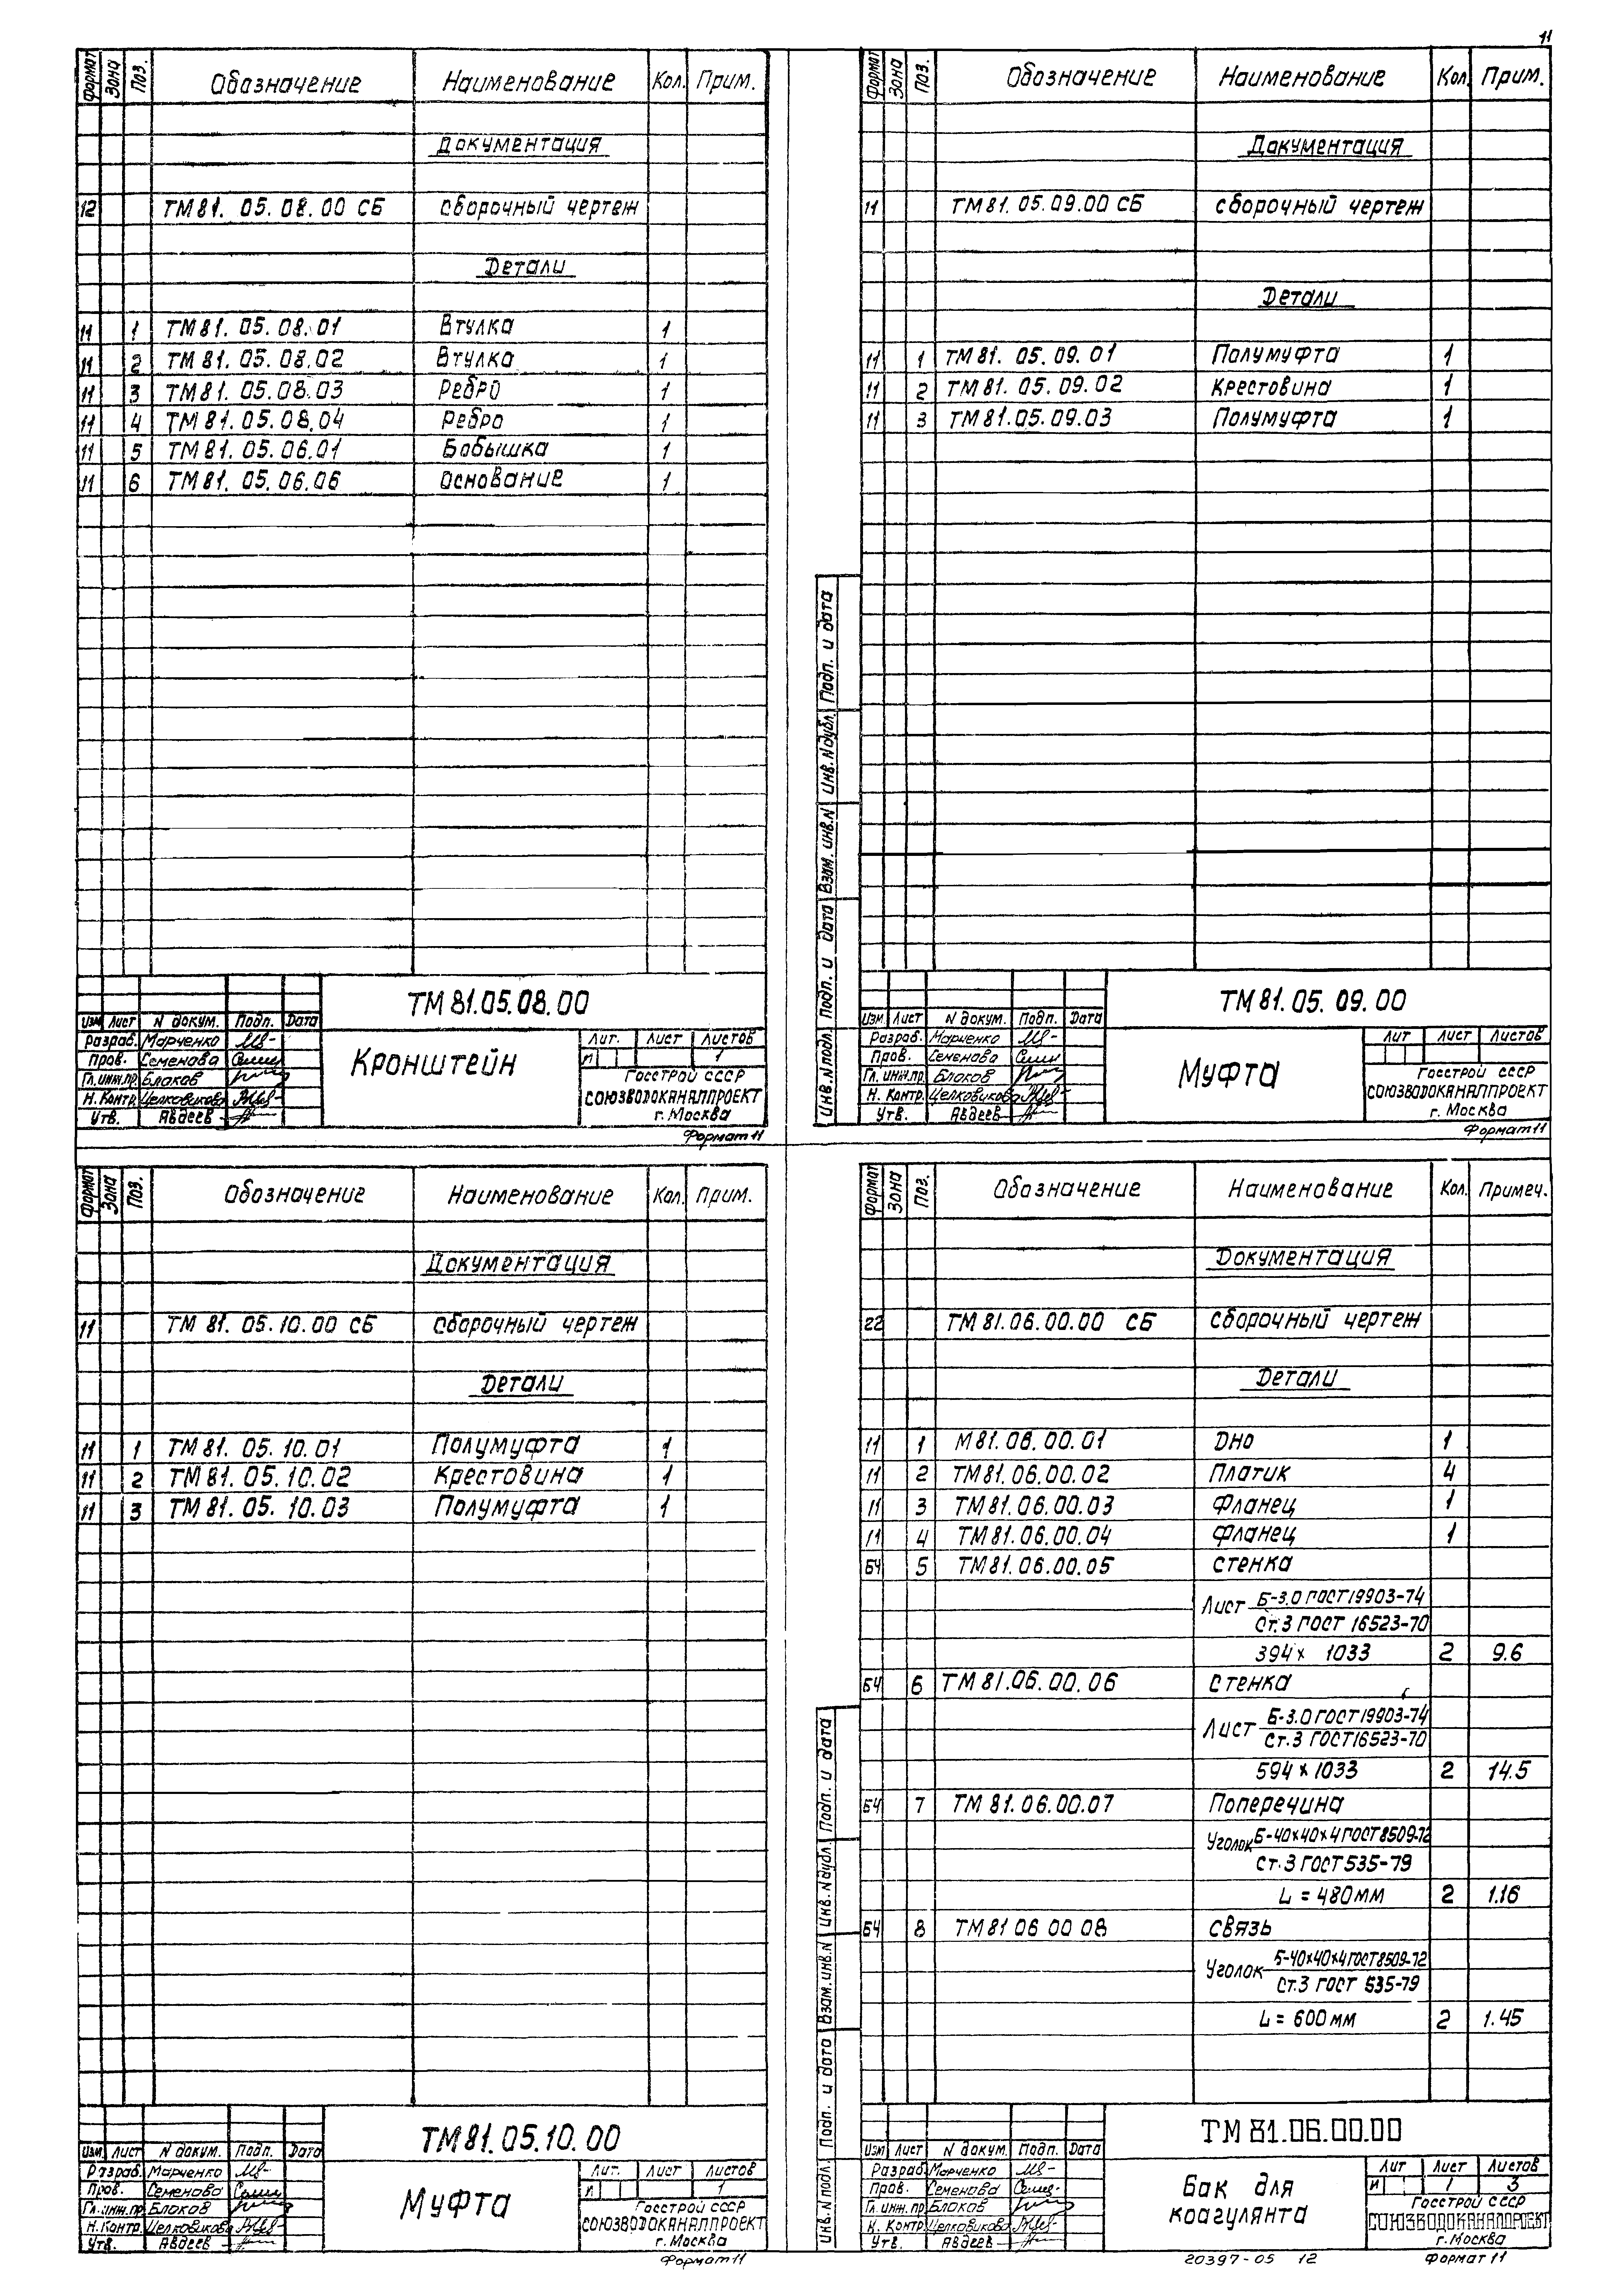 11
Формат Зона Поз. Обозначение Наименование Кол. Прим.
Документация
12 ТМ81. 05. 08. 00 СБ Сборочный чертеж
Детали
11 1 ТМ81. 05. 08. 01 Втулка 1
11 2 ТМ81. 05. 08. 02 Втулка 1
11 3 ТМ81. 05. 08. 03 Ребро 1
11 4 ТМ81. 05. 08. 04 Ребро 1
11 5 ТМ81. 05. 06. 01 Бобышка 1
11 6 ТМ81. 05. 06. 06 Основание 1
ТМ81.05.08.00
Изм Лист N докум. Подп. Дата
Разраб. Марченко
Пров. Семенова
Гл. инж. пр. Блаков
Н. Контр. Целковикова
Утв. Авдеев
Кронштейн
Лит. Лист Листов
И 1
Госстрой СССР
СОЮЗВОДОКАНАЛПРОЕКТ
г. Москва
Формат 11
Формат Зона Поз. Обозначение Наименование Кол. Прим.
Документация
11 ТМ81. 05. 09. 00 СБ Сборочный чертеж
Детали
11 1 ТМ81. 05. 09. 01 Полумуфта 1
11 2 ТМ81. 05. 09. 02 Крестовина 1
11 3 ТМ81. 05. 09. 03 Полумуфта 1
Инв. N подл. Подп. и дата Взам. инв. N Инв. N дубл. Подп. и дата
ТМ81. 05. 09.00
Изм. Лист N докум. Подп. Дата
Разраб. Марченко
Пров. Семенова
Гл. инж. пр. Блаков
Н. Контр. Целковикова
Утв. Авдеев
Муфта
Лит Лист Листов
Госстрой СССР
СОЮЗВОДОКАНАЛПРОЕКТ
г. Москва
Формат 11
Формат Зона Поз. Обозначение Наименование Кол. Прим.
Документация
11 ТМ 81. 05. 10. 00 СБ Сборочный чертеж
Детали
11 1 ТМ81. 05. 10. 01 Полумуфта 1
11 2 ТМ81. 05. 10. 02 Крестовина 1
11 3 ТМ81. 05. 10. 03 Полумуфта 1
ТМ81.05.10.00
Изм Лист N докум. Подп. Дата
Разраб. Марченко
Пров. Семенова
Гл. инж. пр. Блаков
Н. Контр. Целковикова
Утв. Авдеев
Муфта
Лит. Лист Листов
И 1
Госстрой СССР
СОЮЗВОДОКАНАЛПРОЕКТ
г. Москва
Формат 11
Формат Зона Поз. Обозначение Наименование Кол. Примеч.
Документация
22 ТМ81.06.00.00 СБ Сборочный чертеж
Детали
11 1 М81. 06. 00. 01 Дно 1
11 2 ТМ81. 06. 00. 02 Платик 4
11 3 ТМ81. 06. 00. 03 Фланец 1
11 4 ТМ81. 06. 00. 04 Фланец 1
БЧ 5 ТМ81. 06. 00. 05 Стенка
Лист Б-3.0 ГОСТ19903-74
Ст.3 ГОСТ 16523-70
394 х 1033 2 9.6
БЧ 6 ТМ81.06. 00. 06 Стенка
Лист Б-3.0 ГОСТ19903-74
Ст.3 ГОСТ16523-70
594 х 1033 2 14.5
БЧ 7 ТМ 81. 06. 00. 07 Поперечина
Уголок Б-40х40х4 ГОСТ8509-72
Ст.3 ГОСТ535-79
L = 480мм 2 1.16
БЧ 8 ТМ81 06 00 08 Связь
Уголок Б-40х40х4 ГОСТ8509-72
Ст.3 ГОСТ 535-79
L = 600мм 2 1.45
Инв. N подл. Подп. и дата Взам. инв. N Инв. N дубл. Подп. и дата
ТМ 81.06.00.00
Изм Лист N докум. Подп. Дата
Разраб. Марченко
Пров. Семенова
Гл. инж. пр. Блаков
Н. Контр. Целковикова
Утв. Авдеев
Бак для
коагулянта
Лит Лист Листов
И 1 3
Госстрой СССР
СОЮЗВОДОКАНАЛПРОЕКТ
г. Москва
20397-05 12 Формат 11